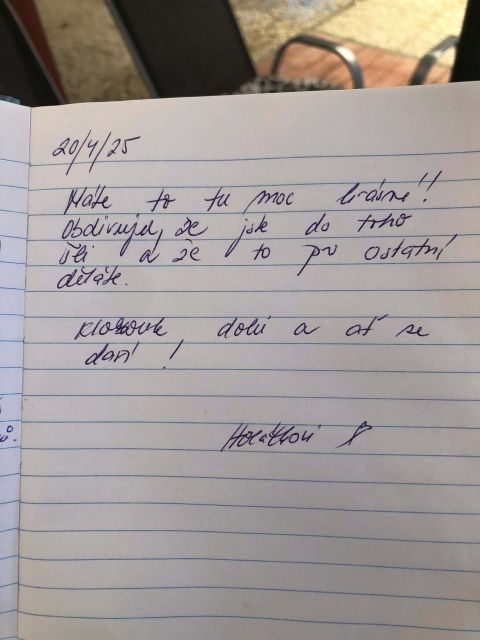 20/4/25
Máte to tu moc krásné!!
Obdivuji, že jste do toho
šli a že to pro ostatní
děláte.
Klobouk dolů a ať se
daří!